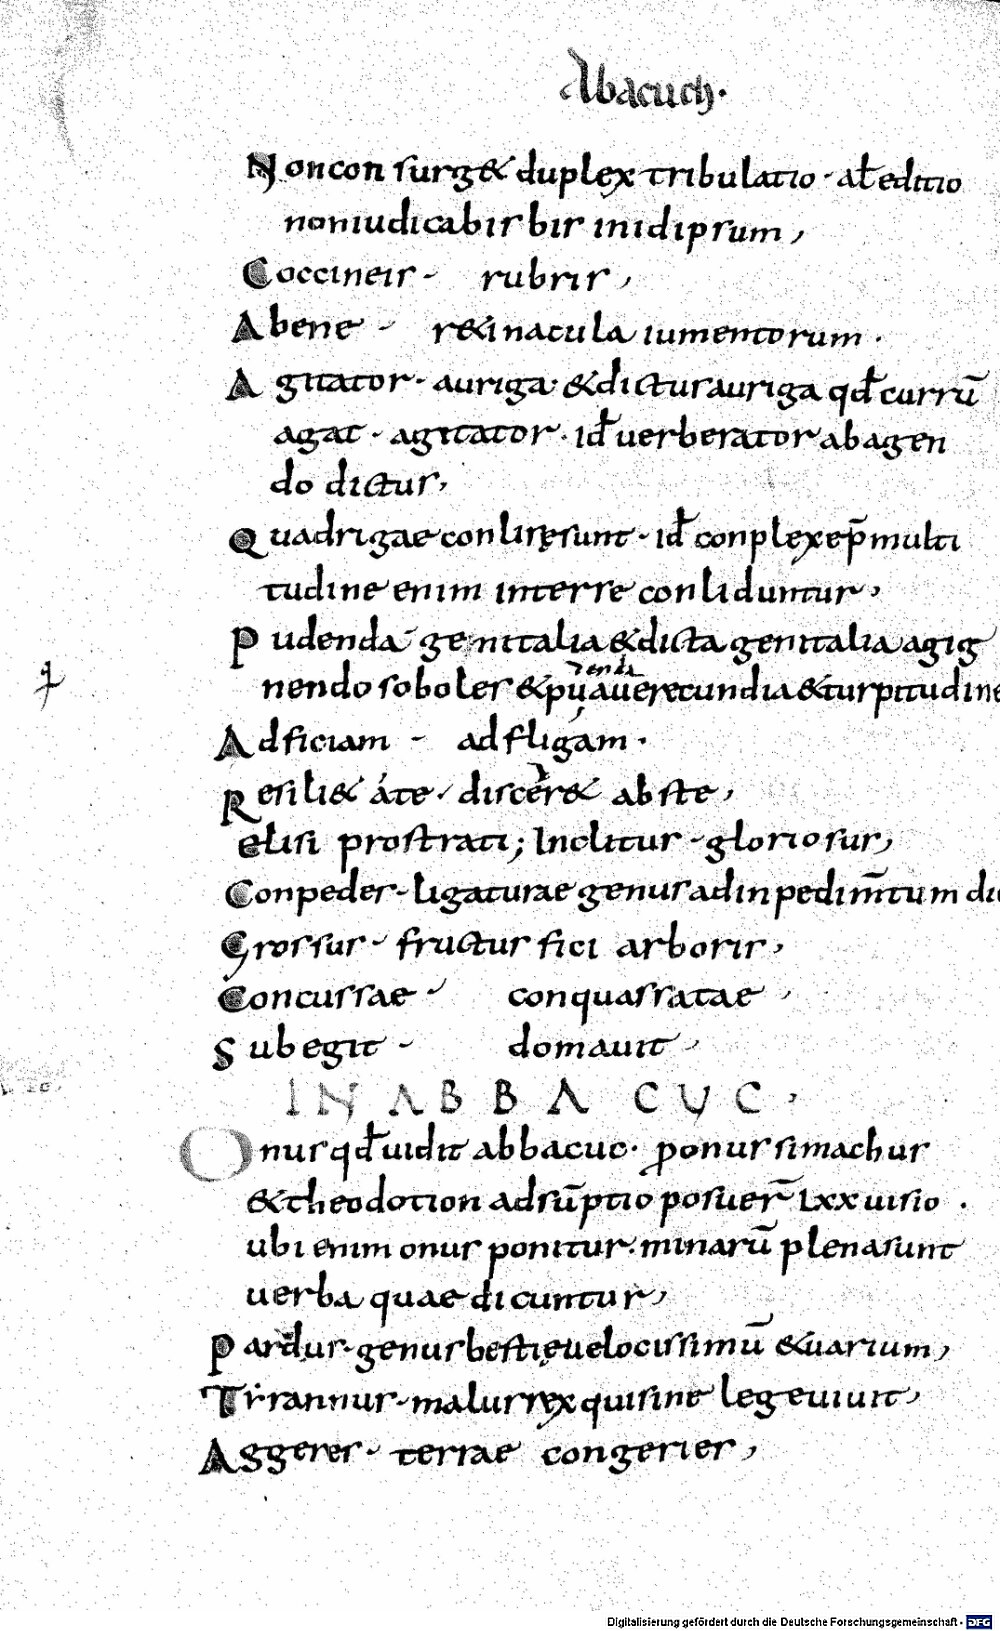 Abacuch.
Non con surg& duplex tribulatio · al̄ editio
non iudicabis bis in id ipsum,
Coccineis - rubris,
Abene - r&inacula iumentorum.
Agitator · auriga · &dictus auriga qđ currū
agat · agitator · iđ uerberator ab agen
do dictus,
Quadrigae conlisęsunt · iđ conplexe p̄ multi
tudine enim inter se conliduntur,
Pudenda genitalia &dicta genitalia agig
nendo soboles & uerecundia &turpitudine
Adficiam - adfligam.
Resili& a te · discer& abs te,
elisi prostrati; Inclitus - gloriosus,
Conpedes - ligaturae genus ad inpedim̄tum
Grossus - fructus fici arboris,
Concussae - conquassatae
Subegit - domauit
IN ABBACUC.
Onus qđ uidit abbacuc · ponus simachus
&theodotion adsūptio posuer̄ Lxx uisio .
ubi enim onus ponitur · minarū plena sunt
uerba quae dicuntur,
Pardus - genus bestię uelocissimū &uarium,
Tirannus - malus rex qui sine lege uiuit,
Aggeres - terrae congeries,
Digitalisierung gefördert durch die Deutsche Forschungsgemeinschaft - DFG